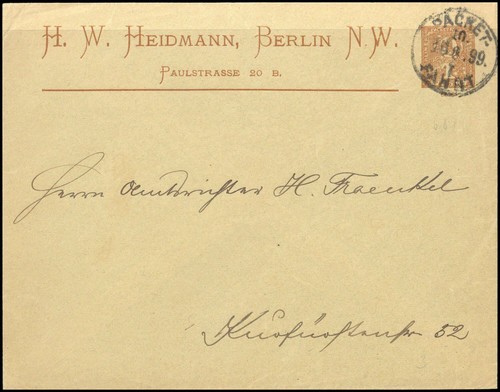 H. W. HEIDMANN, BERLIN N.W.
PAULSTRASSE 20 B.
PACKET-
99.
FAHRT
Herrn Amtsrichter H. Fraenkel
Kurfürstenstr 52